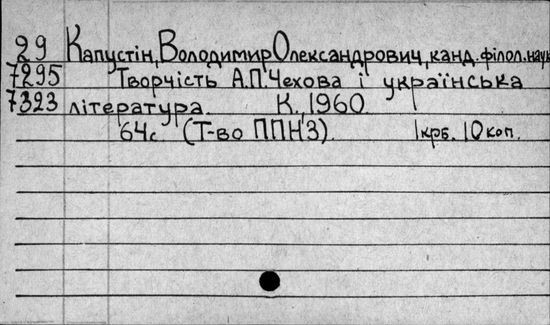 29 Капустін, Володимир Олександрович, канд. філол. наук
7295 Творчість А.П. Чехова і українська
7323 література К., 1960
64с (Т-во ППНЗ). 1 крб. 10 коп.